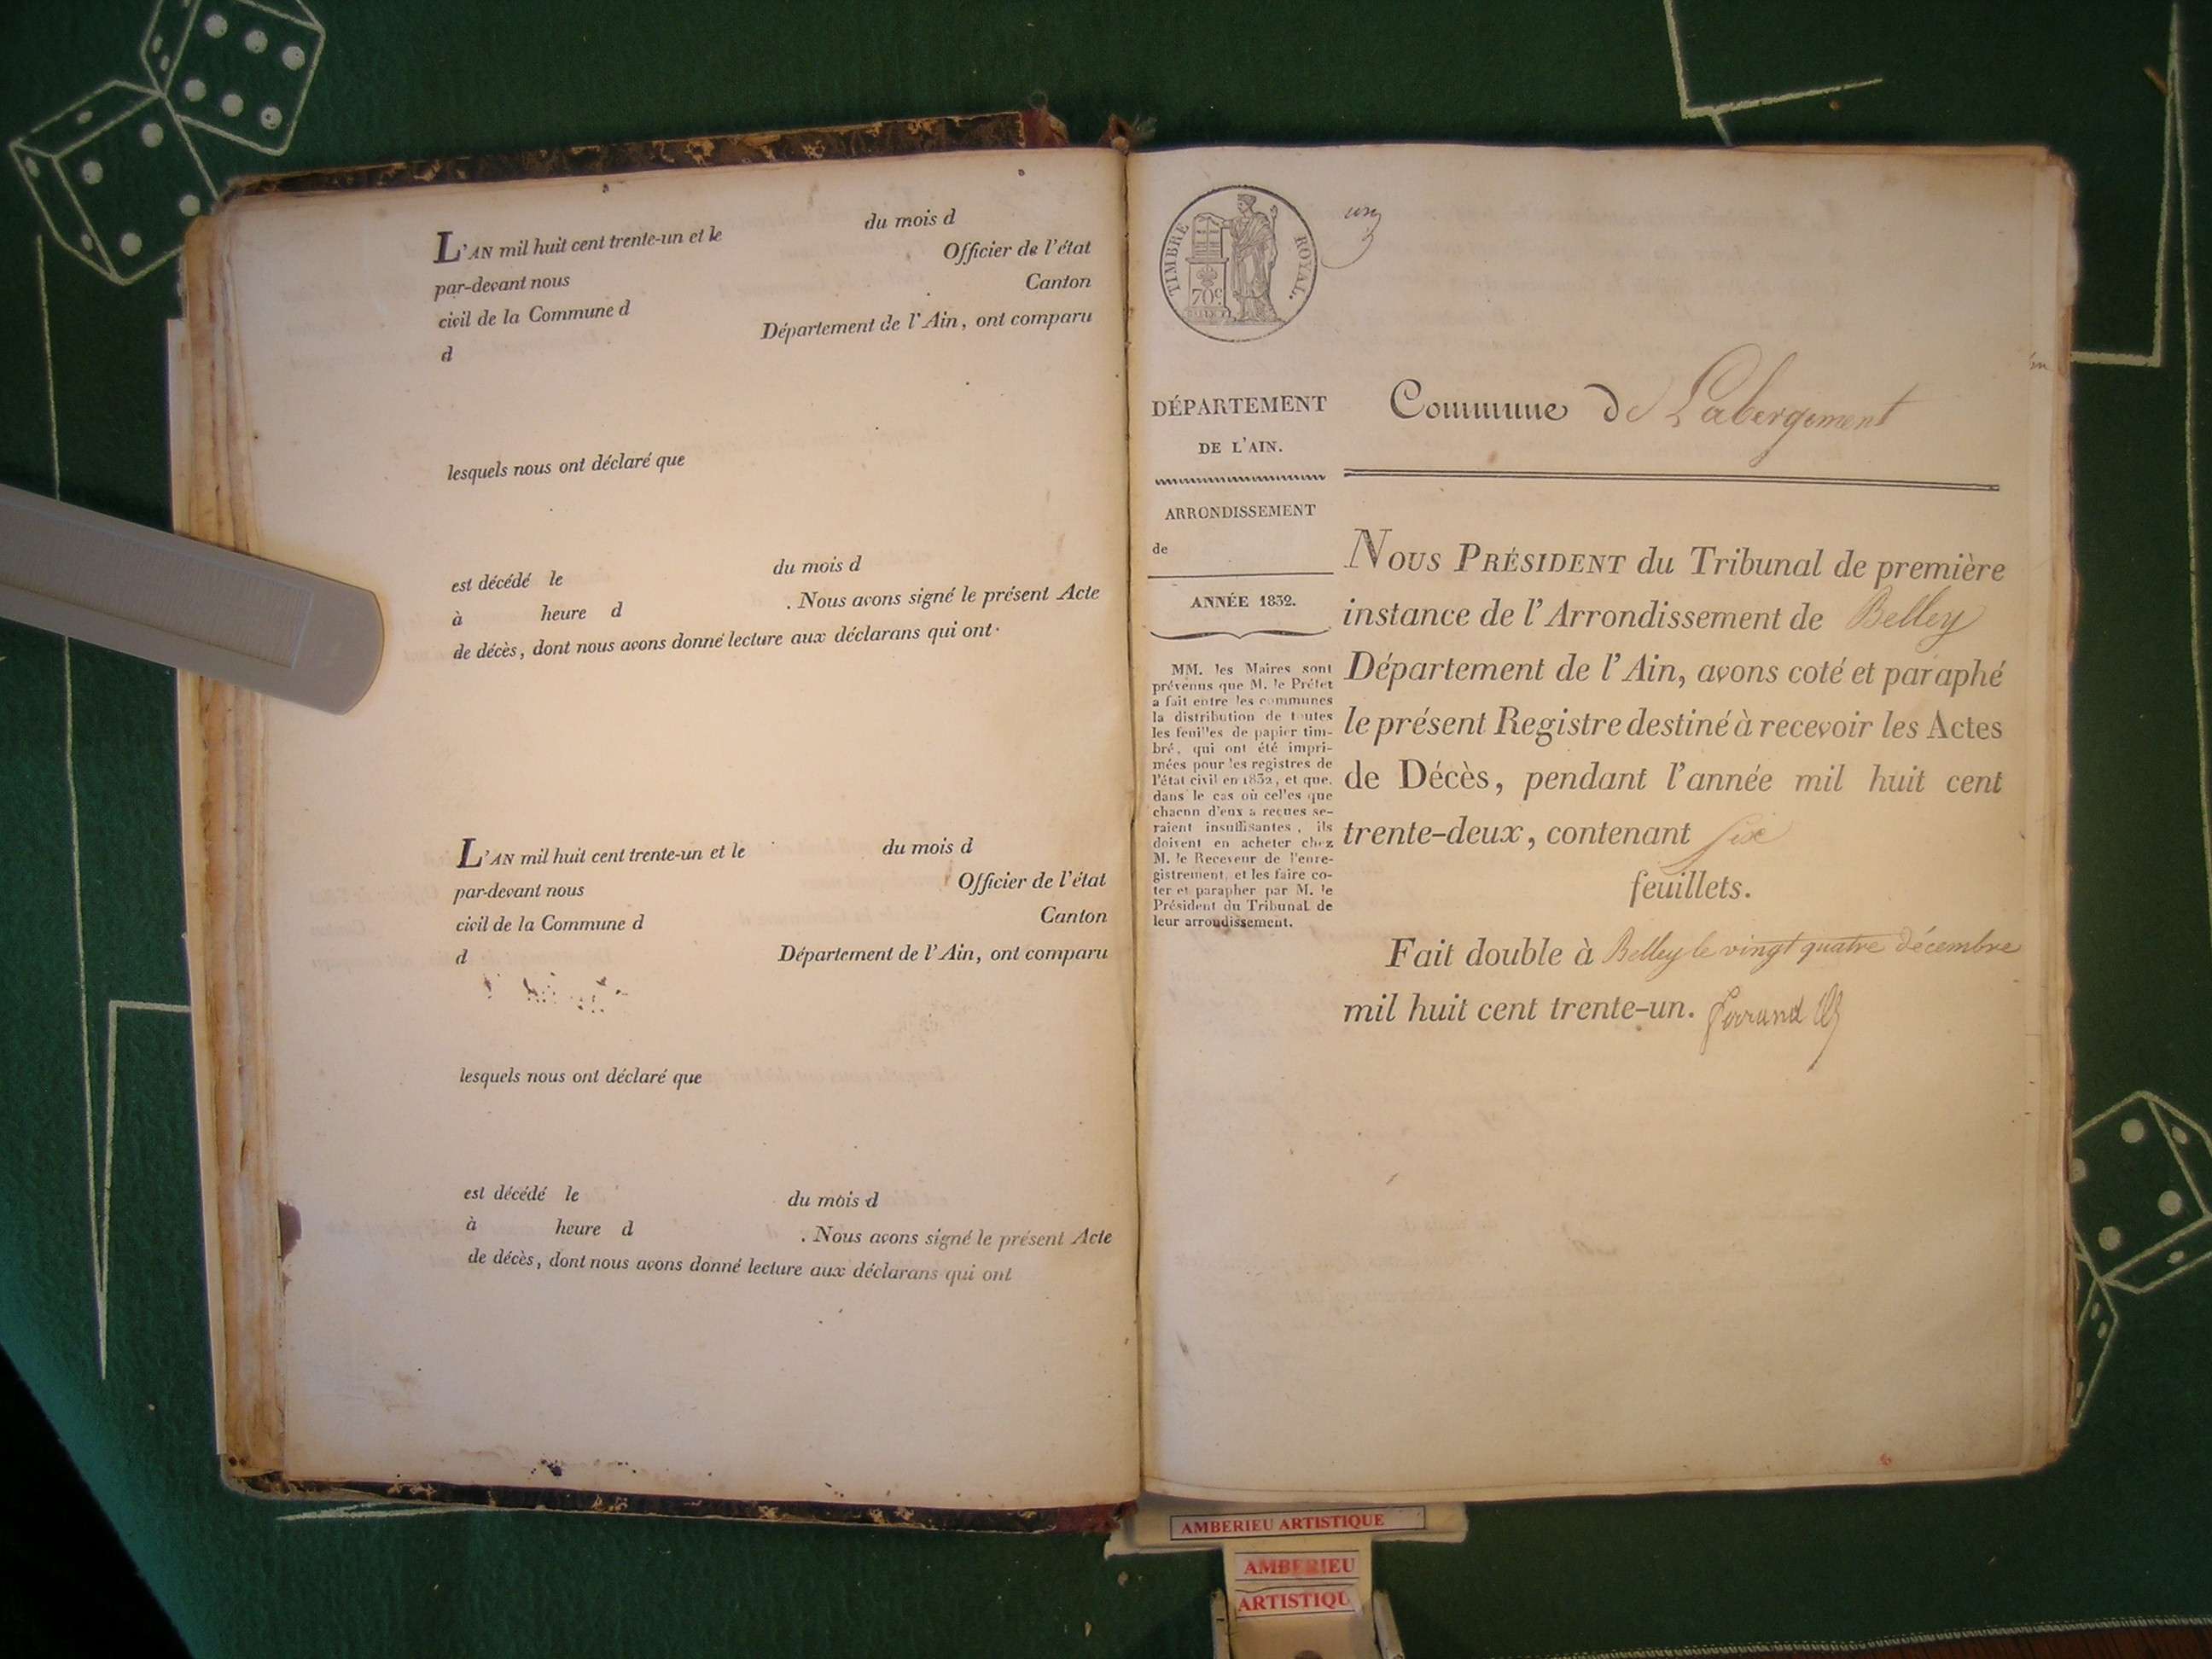 L'AN mil huit cent trente-un et le du mois d
par-devant nous Officier de l'état
civil de la Commune d Canton
d Département de l'Ain, ont comparu
lesquels nous ont déclaré que
est décédé le du mois d
à heure d . Nous avons signé le présent Acte
de décès, dont nous avons donné lecture aux déclarans qui ont
L'AN mil huit cent trente-un et le du mois d
par-devant nous Officier de l'état
civil de la Commune d Canton
d Département de l'Ain, ont comparu
lesquels nous ont déclaré que
est décédé le du mois d
à heure d . Nous avons signé le présent Acte
de décès, dont nous avons donné lecture aux déclarans qui ont
TIMBRE ROYAL.
70c
DÉPARTEMENT
DE L'AIN.
ARRONDISSEMENT
de
ANNÉE 1832.
MM. les Maires sont
prévenus que M. le Préfet
a fait entre les communes
la distribution de toutes
les feuilles de papier tim-
bré, qui ont été impri-
mées pour les registres de
l'état civil en 1832, et que,
dans le cas où celles que
chacun d'eux a reçues se-
raient insuffisantes, ils
doivent en acheter chez
M. le Receveur de l'enre-
gistrement, et les faire co-
ter et parapher par M. le
Président du Tribunal de
leur arrondissement.
Commune de Labergement
NOUS PRÉSIDENT du Tribunal de première
instance de l'Arrondissement de Belley
Département de l'Ain, avons coté et paraphé
le présent Registre destiné à recevoir les Actes
de Décès, pendant l'année mil huit cent
trente-deux, contenant six
feuillets.
Fait double à Belley le vingt quatre décembre
mil huit cent trente-un.
AMBERIEU ARTISTIQUE
AMBERIEU
ARTISTIQU